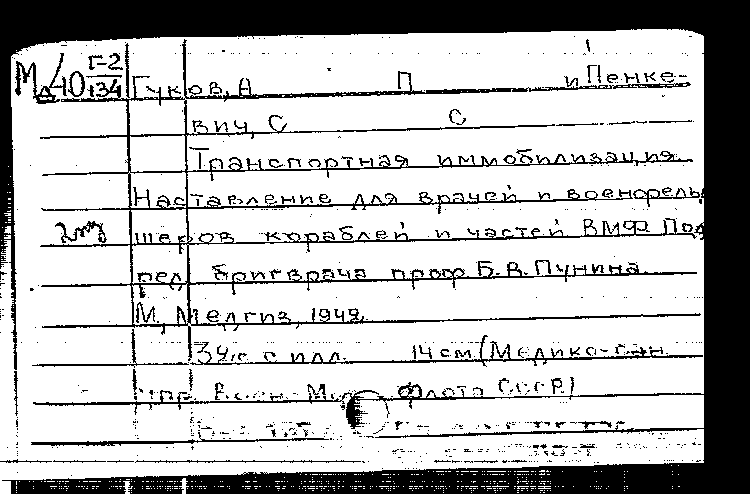 Мд/40 Г-2/134 Гуков, А П и Пенке-
вич, С С
Транспортная иммобилизация.
Наставление для врачей и военфельд
2 экз шеров кораблей и частей ВМФ Под
ред бригврача проф. Б. В. Пунина.
М, Медгиз, 1942.
34 с. с илл. 14 см (Медико-сан
упр. Воен.- Мор. Флота СССР)